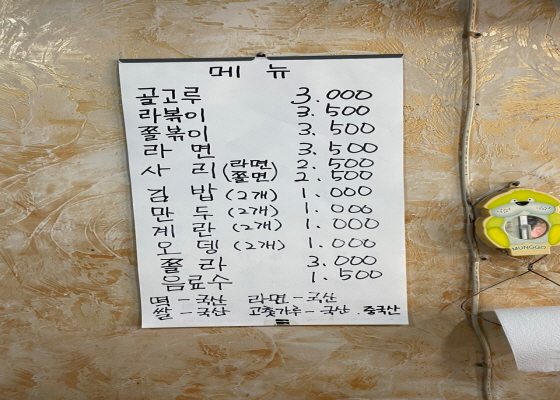 메 뉴
골고루 3.000
라볶이 3.500
쫄볶이 3.500
라 면 3.500
사 리 (라면 2.500
쫄면) 2.500
김 밥 (2개) 1.000
만 두 (2개) 1.000
계 란 (2개) 1.000
오 뎅 (2개) 1.000
쫄 라 3.000
음료수 1.500
떡 - 국산 라면 - 국산
쌀 - 국산 고춧가루 - 국산 . 중국산
MUNGGO